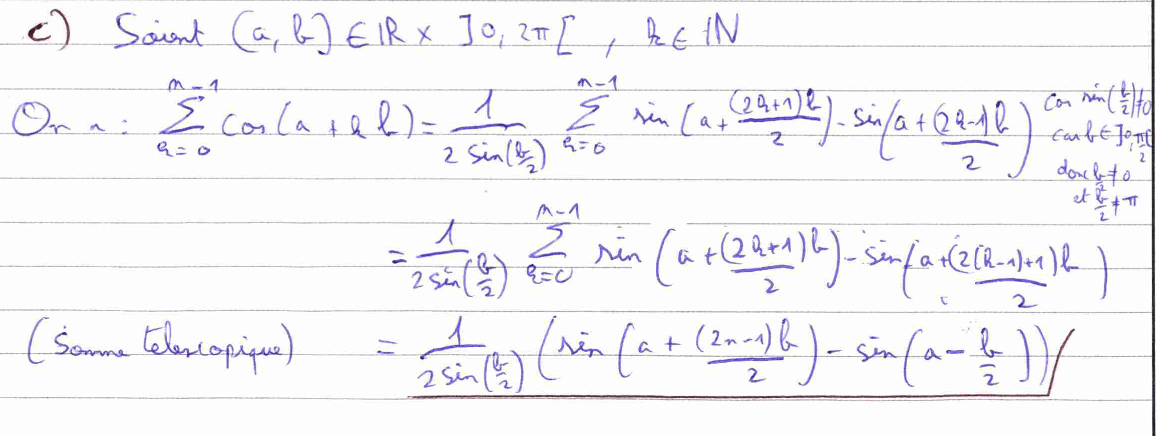 c) Soient (a, b) ∈ ℝ × ]0, 2π[ , k ∈ ℕ
On a : ∑_{k=0}^{n-1} cos(a + k b) = 1/(2 sin(b/2)) ∑_{k=0}^{n-1} sin(a + (2k+1)b/2) - sin(a + (2k-1)b/2)
car sin(b/2) ≠ 0
car b ∈ ]0,
donc b/2 ≠ 0
et b/2 ≠ π
= 1/(2 sin(b/2)) ∑_{k=0}^{n-1} sin(a + (2k+1)b/2) - sin(a + (2(k-1)+1)b/2)
(Somme telescopique) = 1/(2 sin(b/2)) (sin(a + (2n-1)b/2) - sin(a - b/2))